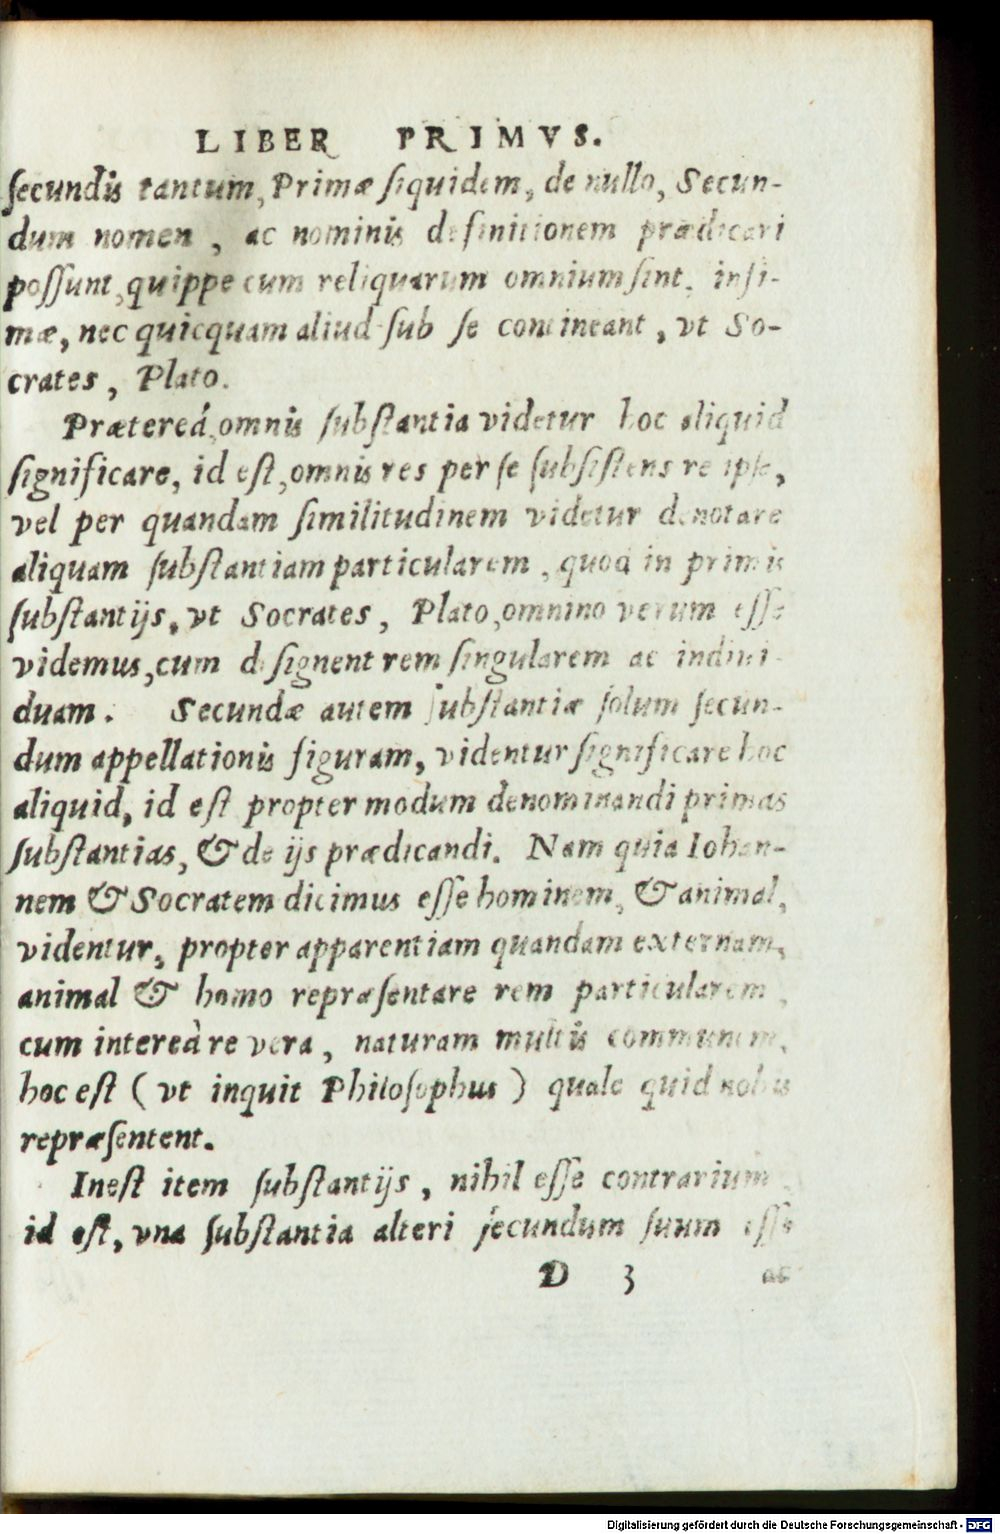 LIBER PRIMVS.
ſecundis tantum, Primæ ſiquidem, de nullo, Secun-
dum nomen, ac nominis definitionem prædicari
poſſunt, quippe cum reliquarum omnium ſint, infi-
mæ, nec quicquam aliud ſub ſe contineant, vt So-
crates, Plato.
Prætereá, omnis ſubſtantia videtur hoc aliquid
ſignificare, id eſt, omnis res per ſe ſubſiſtens re ipſa,
vel per quandam ſimilitudinem videtur denotare
aliquam ſubſtantiam particularem, quod in primis
ſubſtantijs, vt Socrates, Plato, omnino verum eſſe
videmus, cum deſignent rem ſingularem ac indiui-
duam. Secundæ autem ſubſtantiæ ſolum ſecun-
dum appellationis figuram, videntur ſignificare hoc
aliquid, id eſt propter modum denominandi primas
ſubſtantias, & de ijs prædicandi. Nam quia Iohan-
nem & Socratem dicimus eſſe hominem, & animal,
videntur, propter apparentiam quandam externam,
animal & homo repræſentare rem particularem,
cum intereà re vera, naturam multis communem,
hoc eſt (vt inquit Philoſophus) quale quid nobis
repræſentent.
Ineſt item ſubſtantijs, nihil eſſe contrarium,
id eſt, vna ſubſtantia alteri ſecundum ſuum eſſe
D 3 ac
Digitalisierung gefördert durch die Deutsche Forschungsgemeinschaft - DFG